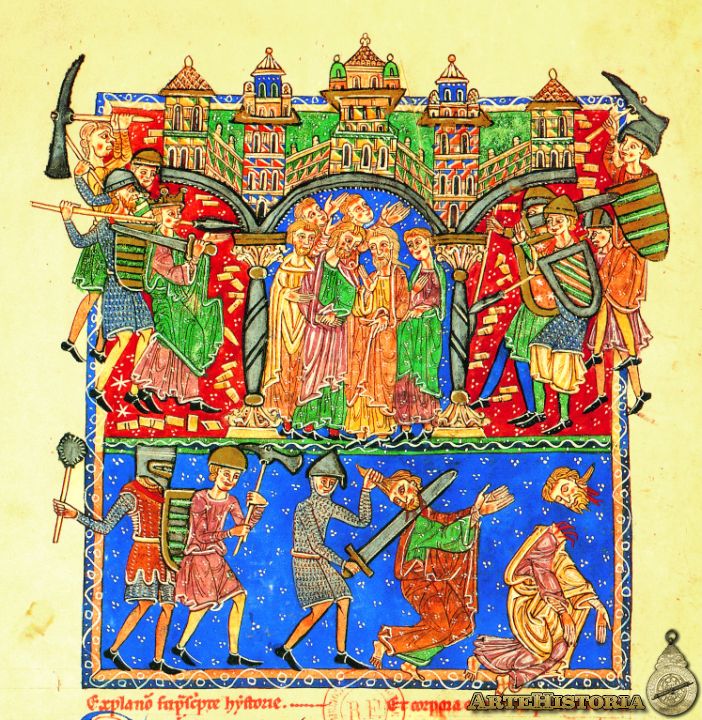 Explanō sup̄sc̄pte hystorie.
Et corpora
R.F.
ARTEHISTORIA